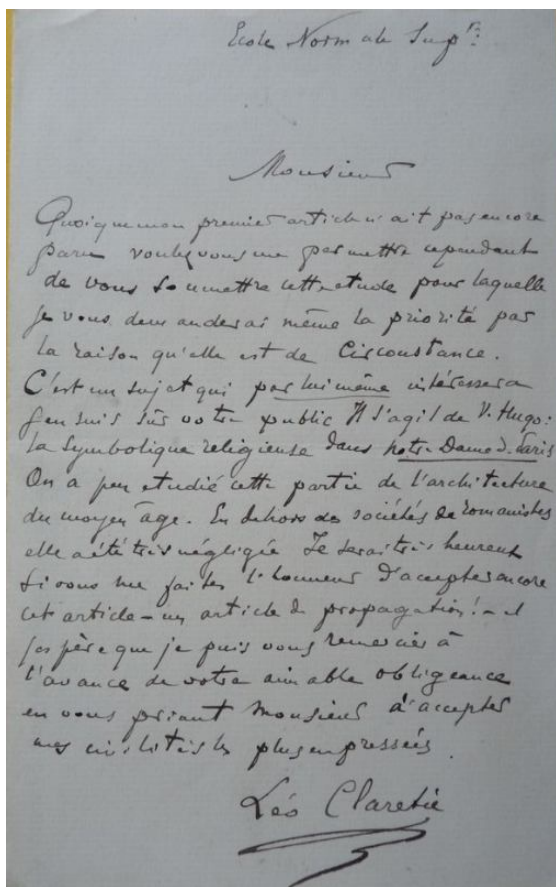 Ecole Normale Supre
Monsieur
Quoique mon premier article n'ait pas encore
paru voulez vous me permettre cependant
de vous soumettre cette etude pour laquelle
je vous demanderai même la priorité par
la raison qu'elle est de circonstance.
C'est un sujet qui par lui même intéressera
j'en suis sûr votre public Il s'agit de V. Hugo:
la symbolique religieuse dans Notre Dame d. Paris
On a peu etudié cette partie de l'architecture
du moyen âge. En dehors des sociétés de romanistes
elle a été très négligée Je serai très heureux
si vous me faites l'honneur d'accepter encore
cet article - un article de propagation! - et
j'espère que je puis vous remercier à
l'avance de votre aimable obligeance
en vous priant Monsieur d'accepter
mes civilités les plus empressées.
Léo Claretie